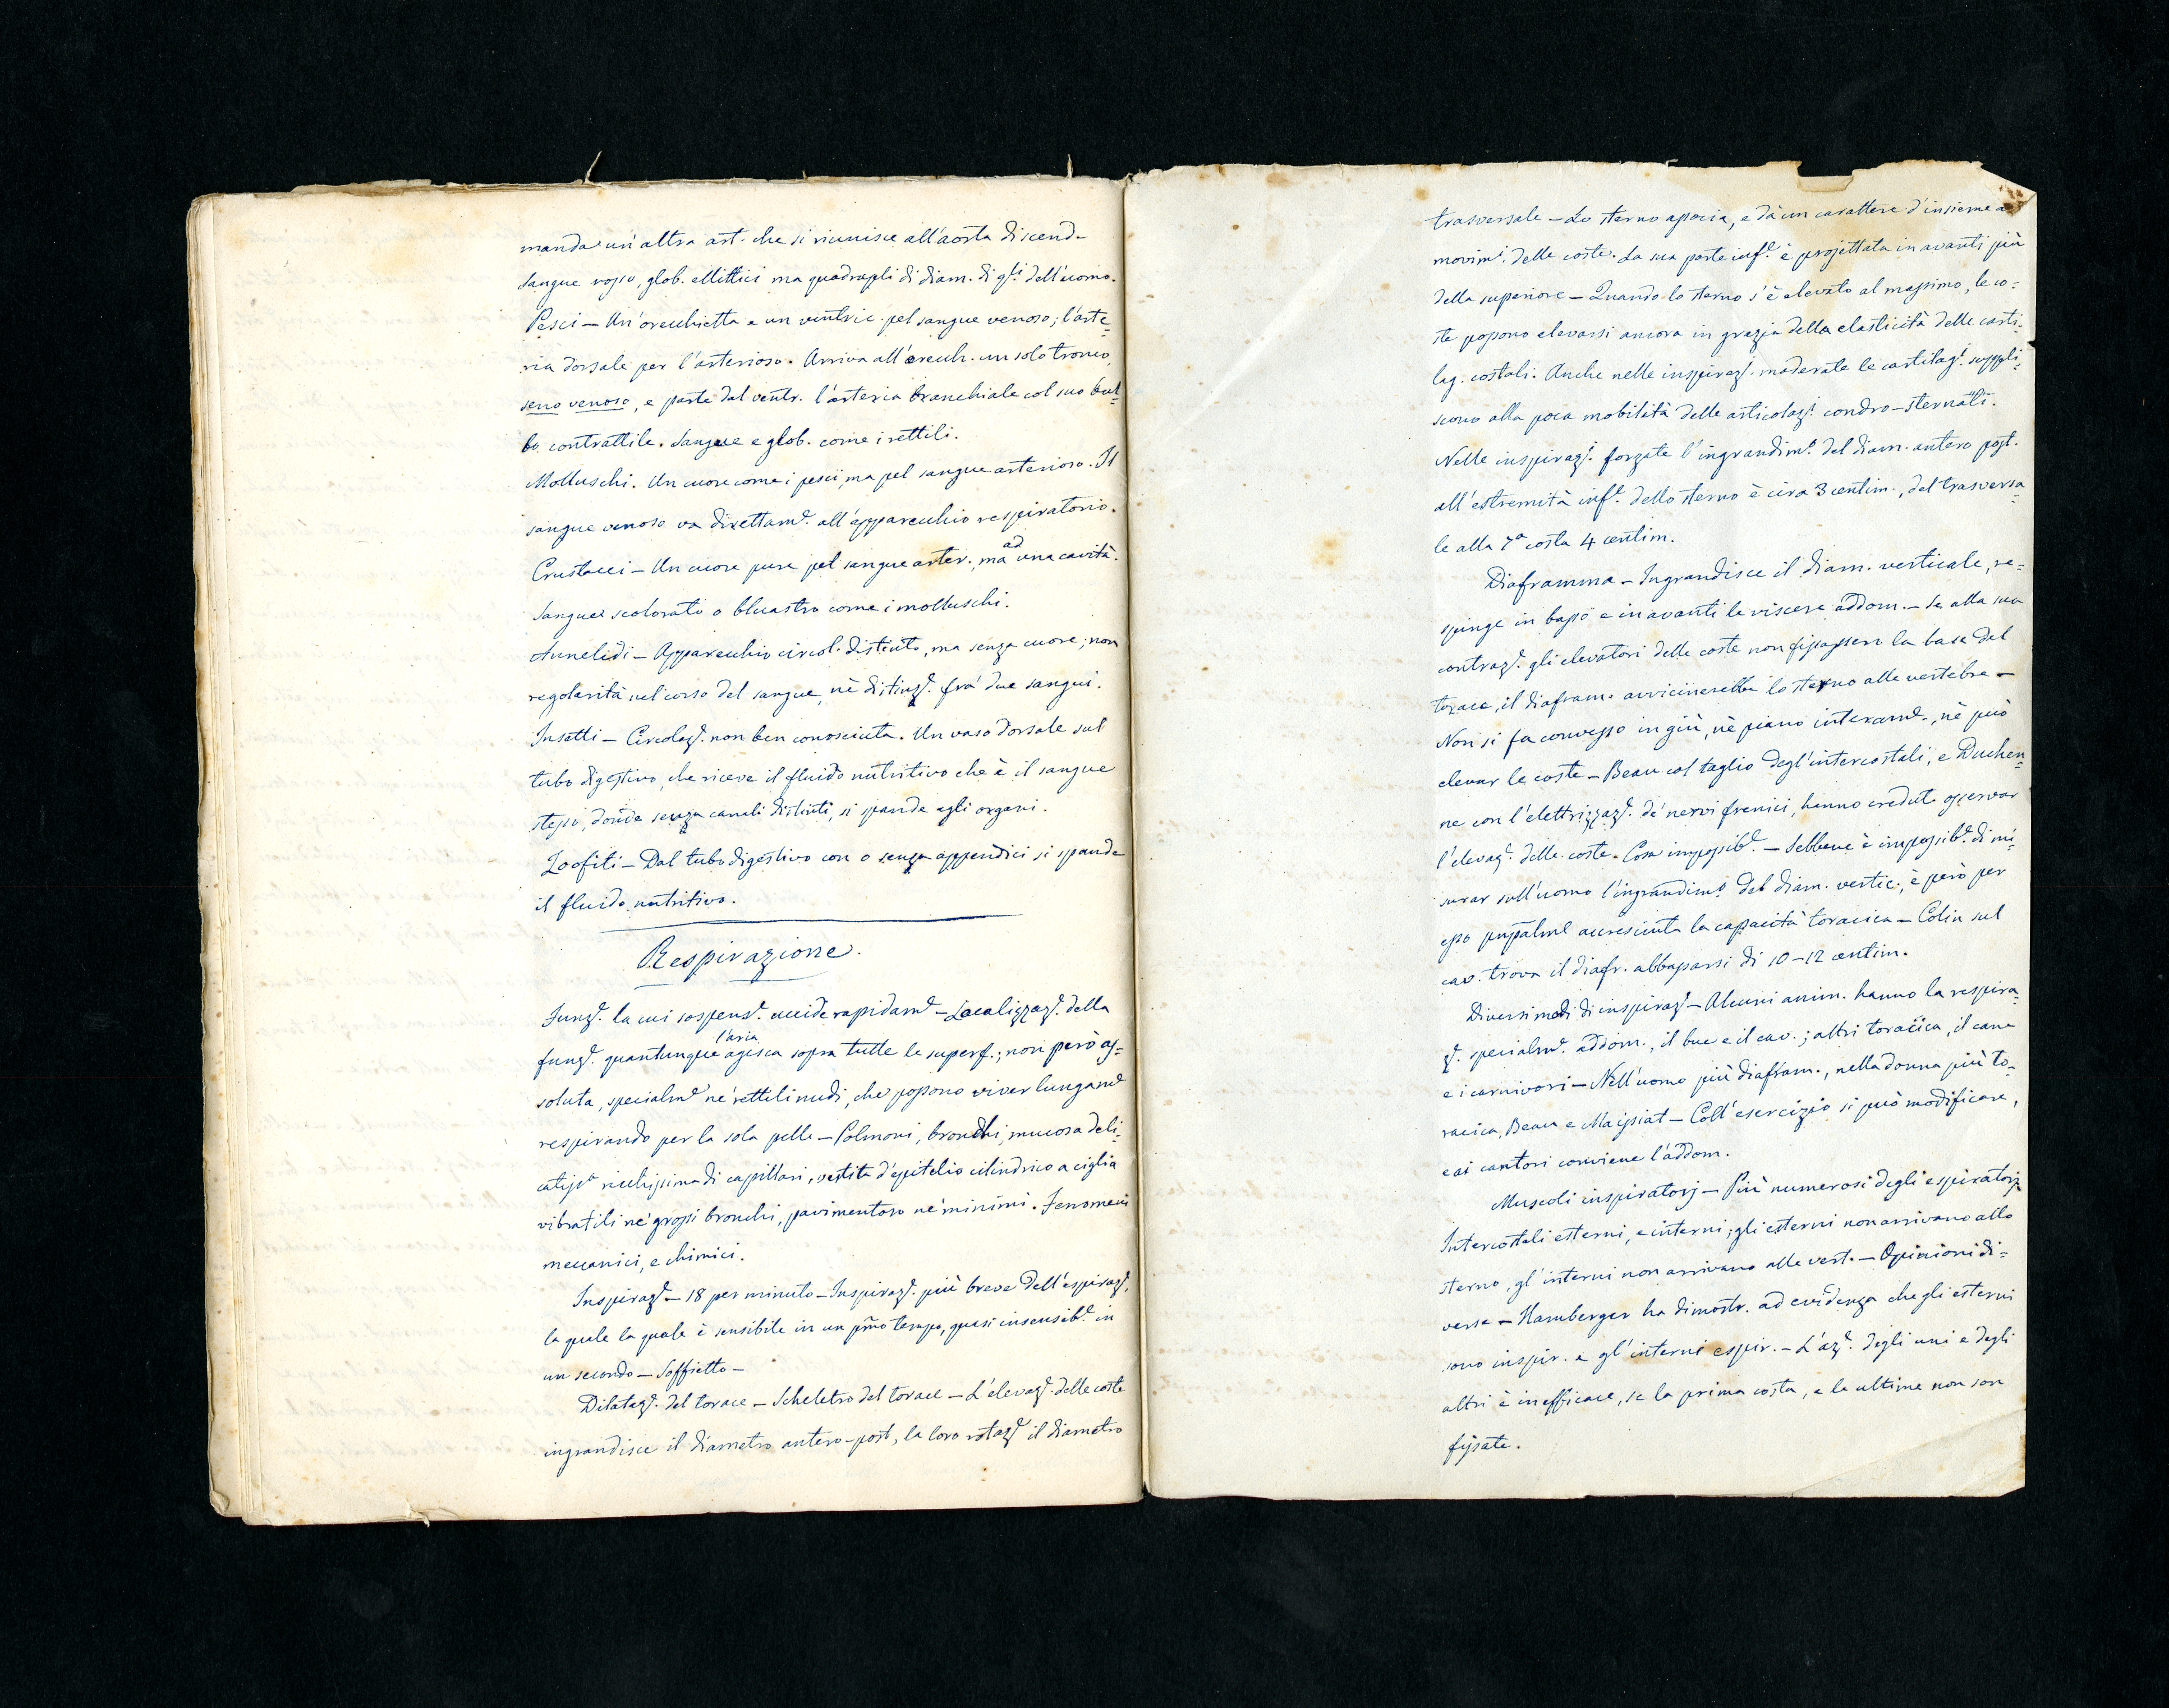 manda un'altra art. che si riunisce all'aorta discend.
Sangue rosso, glob. ellittici ma quadrupli di diam. di q.ti dell'uomo.
Pesci — Un'orecchietta e un ventric. pel sangue venoso; l'arte=
ria dorsale per l'arterioso. Arriva all'orecch. un solo tronco,
seno venoso, e parte dal ventr. l'arteria branchiale col suo bul=
bo contrattile. Sangue e glob. come i rettili.
Molluschi. Un cuore come i pesci, ma pel sangue arterioso. Il
sangue venoso va direttam.e all'apparecchio respiratorio.
Crustacei — Un cuore pure pel sangue arter., ma ad una cavità.
Sangue scolorato o bluastro come i molluschi.
Annelidi — Apparecchio circol. distinto, ma senza cuore; non
regolarità nel corso del sangue, nè distinz.e fra' due sangui.
Insetti — Circolaz.e non ben conosciuta. Un vaso dorsale sul
tubo digestivo, che riceve il fluido nutritivo che è il sangue
stesso, donde senza canali distinti, si spande agli organi.
Zoofiti — Dal tubo digestivo con o senza appendici si spande
il fluido nutritivo.
Respirazione.
Funz.e la cui sospens.e uccide rapidam.e — Localizzaz.e della
funz.e quantunque l'aria agisca sopra tutte le superf.; non però as=
soluta, specialm.e ne' rettili nudi, che possono viver lungam.e
respirando per la sola pelle — Polmoni, bronchi, mucosa deli=
catiss.a ricchissima di capillari, vestita d'epitelio cilindrico a ciglia
vibratili ne' grossi bronchi, pavimentoso ne' minimi. Fenomeni
meccanici, e chimici.
Inspiraz.e — 18 per minuto — Inspiraz.e più breve dell'espiraz.e,
la quale la quale è sensibile in un pr̃mo tempo, quasi insensib.e in
un secondo — Soffietto —
Dilataz.e del torace — Scheletro del torace — L'elevaz.e delle coste
ingrandisce il diametro antero-post., la loro rotaz.e il diametro
trasversale — Lo sterno associa, e dà un carattere d'insieme a'
movim.i delle coste. La sua parte inf.e è projettata in avanti più
della superiore — Quando lo sterno s'è elevato al massimo, le co=
ste possono elevarsi ancora in grazia della elasticità delle carti=
lag. costali. Anche nelle inspiraz.i moderate le cartilag.i suppli=
scono alla poca mobilità delle articolaz.i condro-sternali.
Nelle inspiraz.i forzate l'ingrandim.o del diam. antero post.
all'estremità inf.e dello sterno è circa 3 centim., del trasversa=
le alla 7a costa 4 centim.
Diaframma — Ingrandisce il diam. verticale, re=
spinge in basso e in avanti le viscere addom. — Se alla sua
contraz.e gli elevatori delle coste non fissassero la base del
torace, il diafram. avvicinerebbe lo sterno alle vertebre —
Non si fa convesso in giù, nè piano interam.e, nè può
elevar le coste — Beau col taglio degl'intercostali, e Duchen=
ne con l'elettrizzaz.e de' nervi frenici, hanno creduto osservar
l'elevaz.e delle coste. Cosa impossib.e — Sebbene è impossib.e di mi=
surar sull'uomo l'ingrandim.o del diam. vertic., è però per
esso pnpalme accresciuta la capacità toracica — Colin sul
cav. trova il diafr. abbassarsi di 10-12 centim.
Diversi modi di inspiraz.e — Alcuni anim. hanno la respira=
z.e specialm.e addom., il bue e il cav.; altri toracica, il cane
e i carnivori — Nell'uomo più diafram., nella donna più to=
racica, Beau e Maissiat — Coll'esercizio si può modificare,
e ai cantori conviene l'addom.
Muscoli inspiratorj — Più numerosi degli espiratorj
Intercostali esterni, e interni; gli esterni non arrivano allo
sterno, gl'interni non arrivano alle vert. — Opinioni di=
verse — Hamberger ha dimostr. ad evidenza che gli esterni
sono inspir. e gl'interni espir. — L'az.e degli uni e degli
altri è inefficace, se la prima costa, e le ultime non son
fissate.